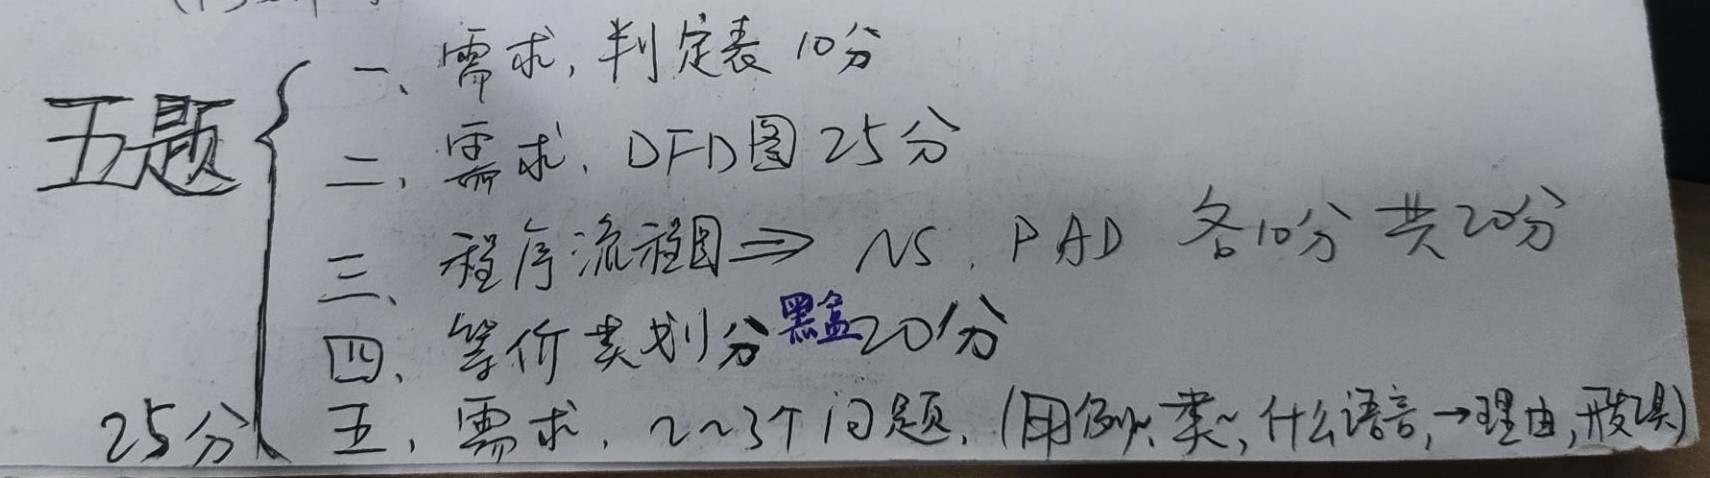 五题
一、需求,判定表 10分
二、需求、DFD图 25分
三、程序流程图⇒ NS、PAD 各10分 共20分
四、等价类划分 黑盒 20分
25分 五、需求,2~3个问题,(用例~、类~,什么语言,→理由,开发工具)